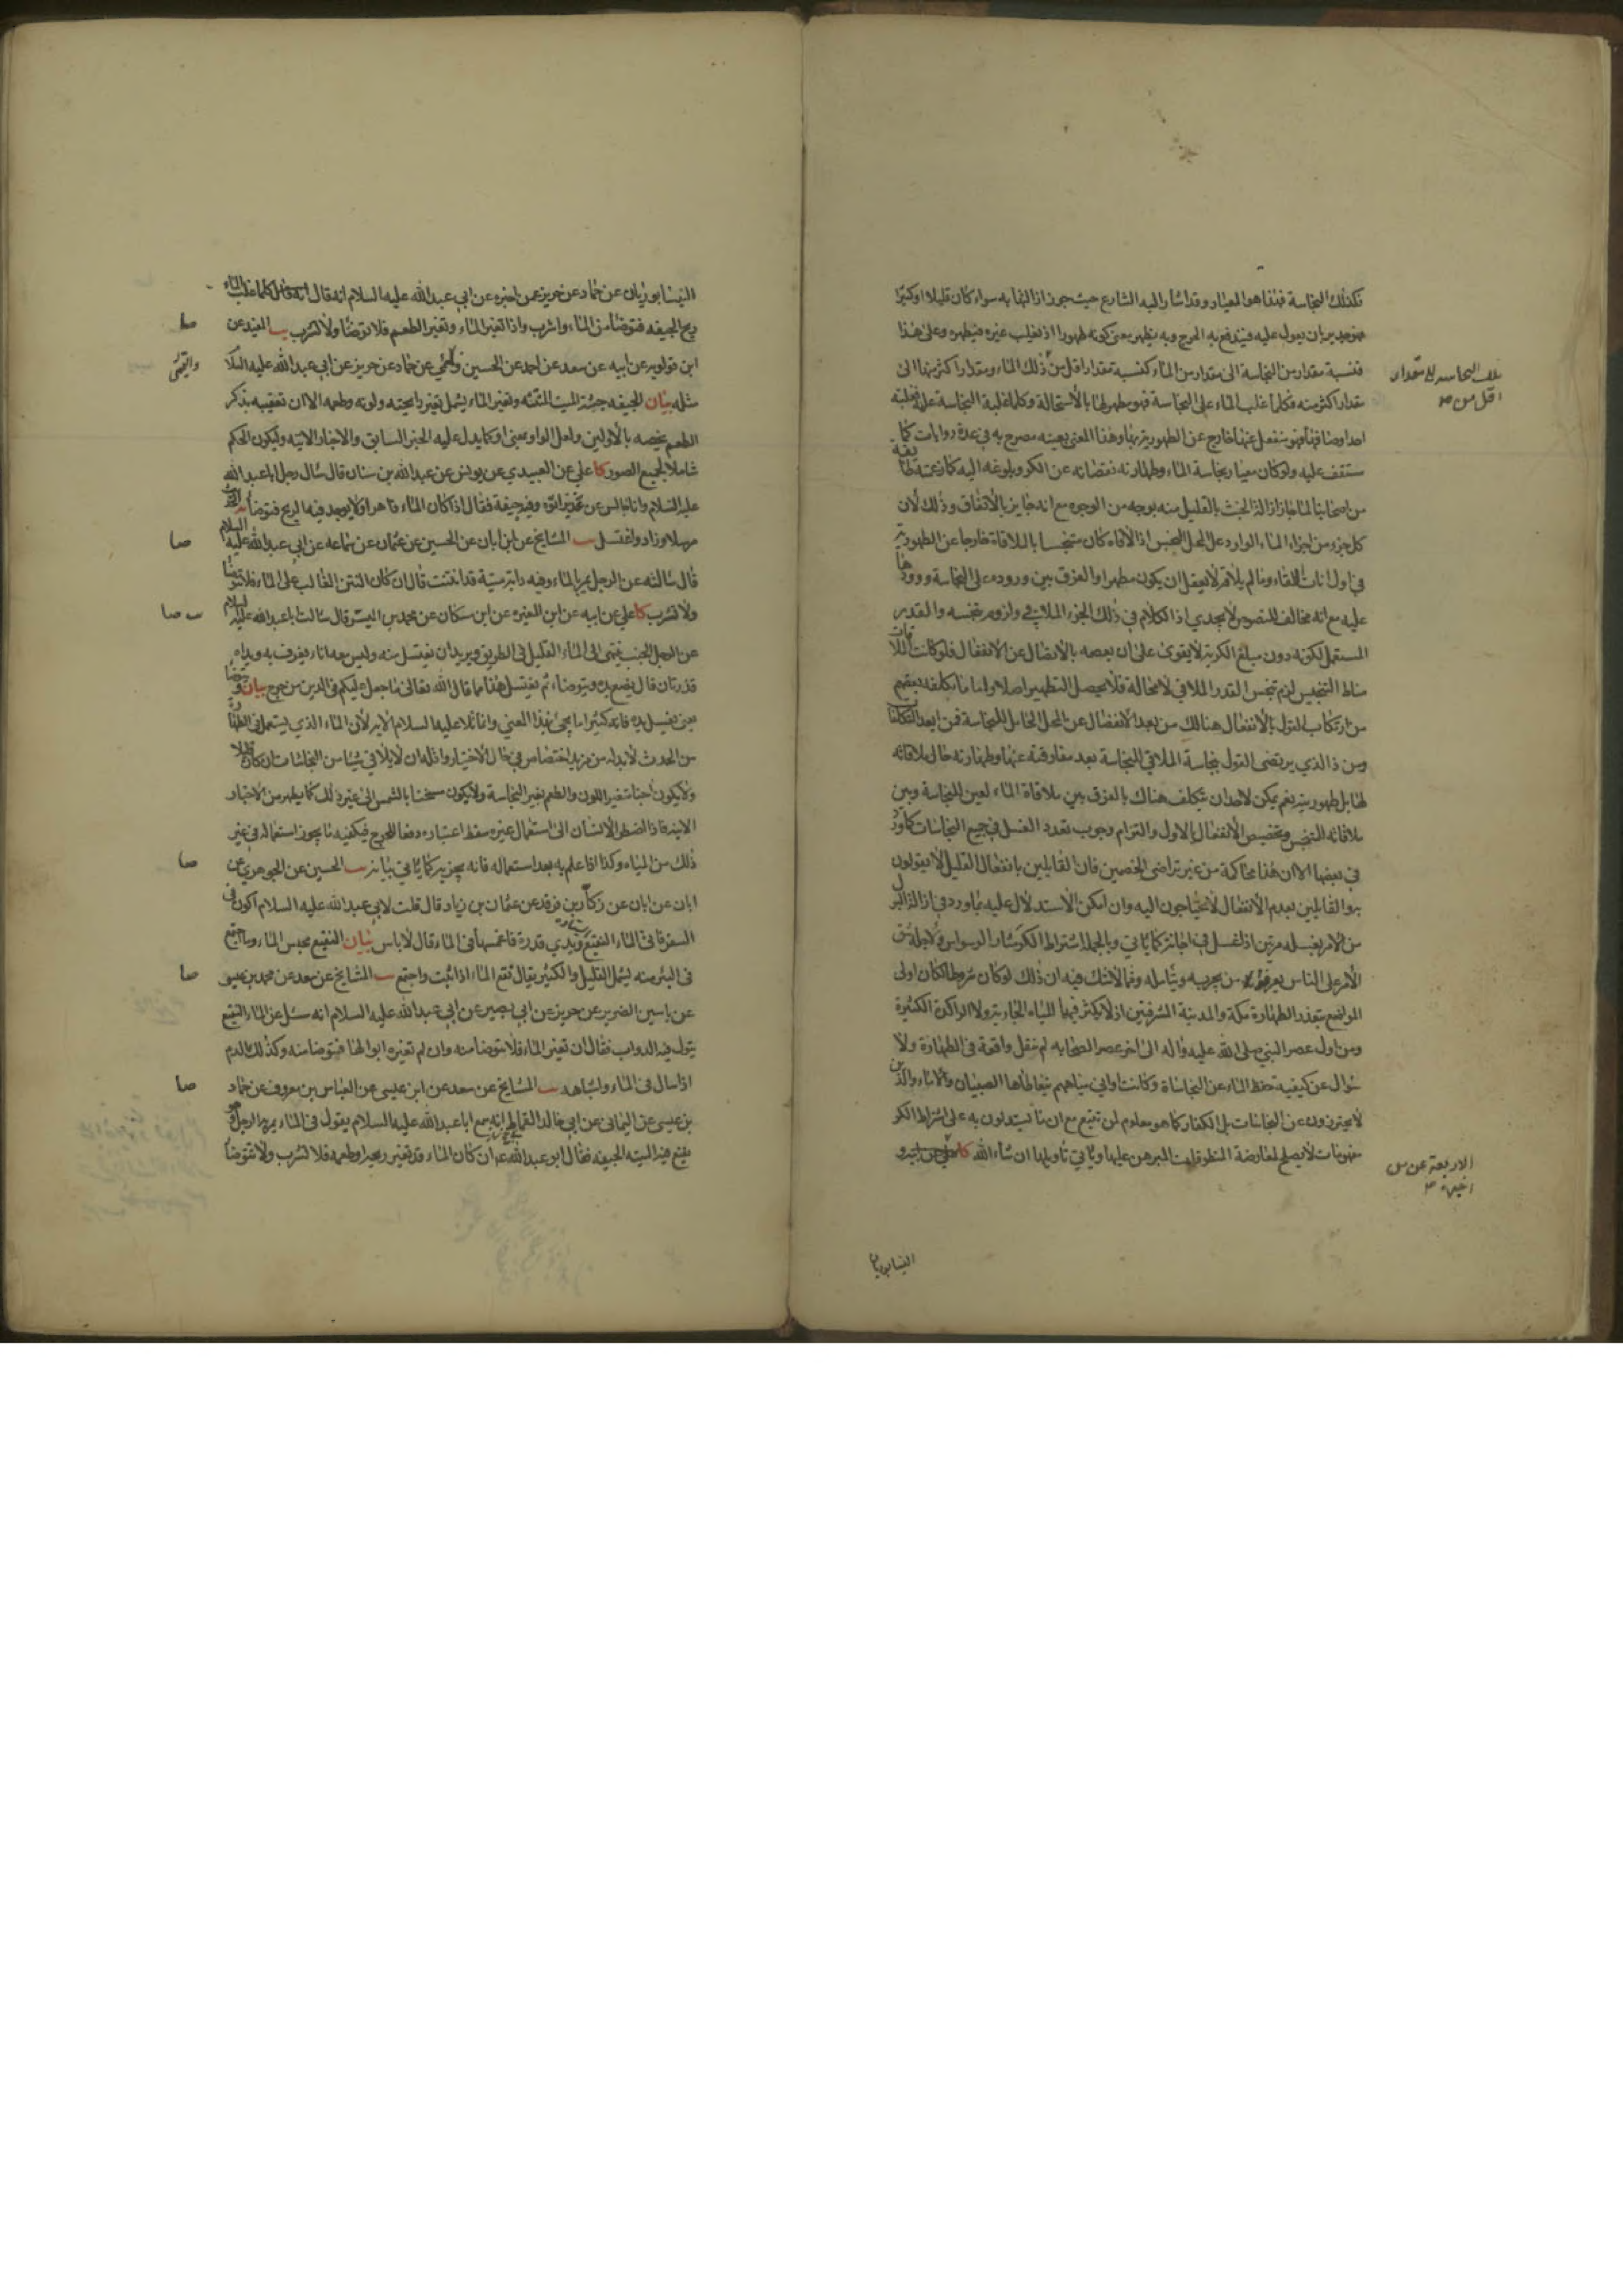 فكذلك النجاسة فهذا هو المعيار وقد اشار اليه الشارع حيث جوز ازالتها به سواء كان قليلا او كثيرا
فهو جدير ان يعول عليه فيندفع به الحرج وبه يظهر معنى كونه طهورا اذ يغلب غيره فيطهره وعلى هذا
فنسبة مقدار من النجاسة الى مقدار من الماء كنسبة مقدار اقل من ذلك الماء ومقدار اكثر منها الى
تلك النجاسة الى مقدار
اقل من
مقدار اكثر منه فكلما غلب الماء على النجاسة فهو مطهر لها بالاستحالة وكلما غلبت النجاسة عليه بغلبة
احد اوصافها فهو منفعل عنها خارج عن الطهورية بها وهذا المعنى بعينه مصرح به في عدة روايات كما
ستقف عليه ولو كان معيار نجاسة الماء وطهارته نقصانه عن الكر وبلوغه اليه كما زعمته طايفة
من اصحابنا لما جاز ازالة الخبث بالقليل منه بوجه من الوجوه مع انه جايز بالاتفاق وذلك لان
كل جزء من اجزاء الماء الوارد على المحل النجس اذا لاقاه كان متنجسا بالملاقاة خارجا عن الطهورية
في اول انات اللقاء وما لم يلاقه لا يعقل ان يكون مطهرا والفرق بين وروده على النجاسة وورودها
عليه مع انه مخالف للنصوص لا يجدي اذ الكلام في ذلك الجزء الملاقي ولزوم تنجسه والقدر
المستعمل لكونه دون مبلغ الكرية لا يقوى على ان يعصمه بالاتصال عن الانفعال فلو كانت الملاقات
مناط التنجيس لزم تنجس القدر الملاقي لا محالة فلا يحصل التطهير اصلا واما ما تكلفه بعضهم
من ارتكاب القول بالانفعال هنالك من بعد الانفصال عن المحل الحامل للنجاسة فمن ابعد التكلفات
ومن ذا الذي يرتضي القول بنجاسة الملاقي للنجاسة بعد مفارقته عنها وطهارته حال ملاقاته
لها بل طهوريته نعم يمكن لاحد ان يتكلف هناك بالفرق بين ملاقاة الماء لعين النجاسة وبين
ملاقاته للمتنجس وتخصيص الانفعال بالاول والتزام وجوب تعدد الغسل في جميع النجاسات كما ورد
في بعضها الا ان هذا محاكمة من غير تراضي الخصمين فان القايلين بانفعال القليل لا يقولون
به والقايلين بعدم الانفعال لا يحتاجون اليه وان امكن الاستدلال عليه بما ورد في ازالة البول
من الامر بغسله مرتين اذا غسل في اجانة كما ياتي وبالجملة اشتراط الكر مثار الوسواس ولاجله شق
الامر على الناس يعرفه من يجربه ويتامله ومما لا شك فيه ان ذلك لو كان شرطا لكان اولى
المواضع بتعذر الطهارة مكة والمدينة المشرفتين اذ لا يكثر فيهما المياه الجارية ولا الراكدة الكثيرة
ومن اول عصر النبي صلى الله عليه واله الى اخر عصر الصحابه لم ينقل واقعة في الطهارة ولا
سؤال عن كيفية حفظ الماء عن النجاسات وكانت اواني مياههم يتعاطاها الصبيان والاماء والذين
لا يحترزون عن النجاسات بل الكفار كما هو معلوم لمن تتبع مع ان ما يستدلون به على اشتراط الكر
مفهومات لا يصلح لمعارضة المنطوقات المبرهن عليها وياتي تاويلها ان شاء الله كا علي عن ابيه و
الاربعة عن
النيسابوريان
النيسابوريان عن حماد عن حريز عمن اخبره عن ابي عبد الله عليه السلام انه قال كلما غلب الماء
ريح الجيفه فتوضا من الماء واشرب واذا تغير الماء وتغير الطعم فلا توضا ولا تشرب يب المفيد عن
صا
ابن قولويه عن ابيه عن سعد عن احمد عن الحسين والتميمي عن حماد عن حريز عن ابي عبد الله عليه السلام
والتميمي
مثله بيان الجيفه جثة الميت المنتنه وتغير الماء يشمل تغير رايحته ولونه وطعمه الا ان تعقيبه بذكر
الطعم يخصه بالاولين ولعل الواو بمعنى او كما يدل عليه الخبر السابق والاخبار الاتيه وليكون الحكم
شاملا لجميع الصور كا علي عن العبيدي عن يونس عن عبد الله بن سنان قال سال رجل ابا عبد الله
عليه السلام وانا جالس عن غدير اتوه وفيه جيفة فقال اذا كان الماء قاهرا ولا يوجد فيه الريح فتوضا
وزاد واغتسل يب المشايخ عن ابن ابان عن الحسين عن عثمان عن سماعه عن ابي عبد الله عليه السلام
صا
قال سالته عن الرجل يمر بالماء وفيه دابة ميتة قد انتنت قال ان كان النتن الغالب على الماء فلا تتوضا
ولا تشرب كا علي عن ابيه عن ابن المغيره عن ابن مسكان عن محمد بن الميسر قال سالت ابا عبد الله عليه السلام
يب صا
عن الرجل الجنب ينتهي الى الماء القليل في الطريق ويريد ان يغتسل منه وليس معه اناء يغرف به ويداه
قذرتان قال يضع يده ويتوضاء ثم يغتسل هذا مما قال الله تعالى ما جعل عليكم في الدين من حرج بيان
يعني يغسل يده فانه كثيرا ما يجئ بهذا المعنى وانما قال عليه السلام لان الماء الذي يستعمل في الطهارة
من الحدث لا بد له من مزيد اختصاص في حال الاختيار واقله ان لا يلاقي شيئا من النجاسات ان كان قليلا
ولا يكون اجنا متغير اللون والطعم بغير النجاسة ولا يكون مسخنا بالشمس الى غير ذلك كما يظهر من الاخبار
الاتيه فاذا اضطر الانسان الى استعمال غيره سقط اعتباره دفعا للحرج فيكفيه ما يجوز استعماله في غير
ذلك من المياه وكذا اذا علم به بعد استعماله فانه يجزيه كما ياتي بيانه يب الحسين عن الجوهري عن
صا
ابان عن زكار بن فرقد عن عثمان بن زياد قال قلت لابي عبد الله عليه السلام اكون في
السفر فاتي الماء النقيع ويدي قذرة فاغمسها في الماء قال لا باس بيان النقيع محبس الماء وما اجتمع
في البئر منه يشمل القليل والكثير يقال نقع الماء اذا ثبت واجتمع يب المشايخ عن سعد عن محمد بن عيسى
صا
عن ياسين الضرير عن حريز عن ابي بصير عن ابي عبد الله عليه السلام انه سئل عن الماء النقيع
يبول فيه الدواب فقال ان تغير الماء فلا تتوضا منه وان لم تغيره ابوالها فتوضا منه وكذلك الدم
اذا سال في الماء واشباهه يب المشايخ عن سعد عن ابن عيسى عن العباس بن معروف عن حماد
صا
بن عيسى عن اليماني عن ابي خالد القماط انه سمع ابا عبد الله عليه السلام يقول في الماء يمر به الرجل وهو
نقيع فيه الميته الجيفه فقال ابو عبد الله ع ان كان الماء قد تغير ريحه او طعمه فلا تشرب ولا تتوضا